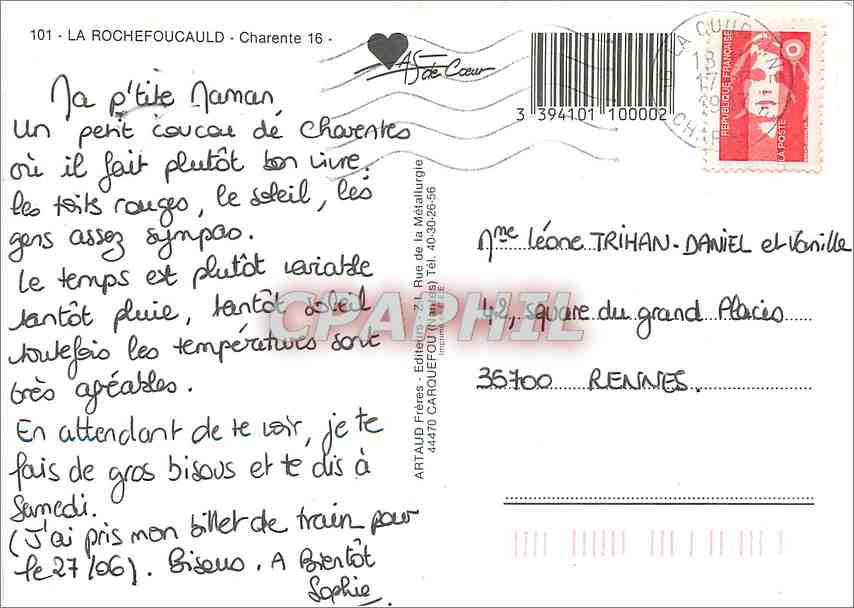 101 - LA ROCHEFOUCAULD - Charente 16 -
AS de Cœur
3 394101 100002
REPUBLIQUE FRANÇAISE
LA POSTE
Ma p'tite Maman
Un petit coucou de Charentes
où il fait plutôt bon vivre,
les toits rouges, le soleil, les
gens assez sympas.
Le temps est plutôt variable
tantôt pluie, tantôt soleil
toutefois les températures sont
très agréables.
En attendant de te voir, je te
fais de gros bisous et te dis à
Samedi.
(J'ai pris mon billet de train pour
le 27/06). Bisous. A Bientôt
Sophie.
ARTAUD Frères - Editeurs - Z.I. Rue de la Métallurgie
44470 CARQUEFOU (Nantes) Tél. 40-30-26-56
Mme Léone TRIHAN-DANIEL et Vanille
42, square du grand Placis
35700 RENNES.
CPAPHIL